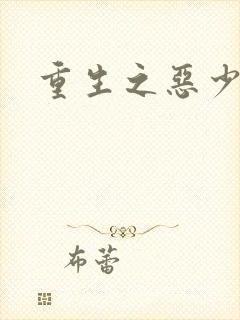 重生之惡少
布蕾